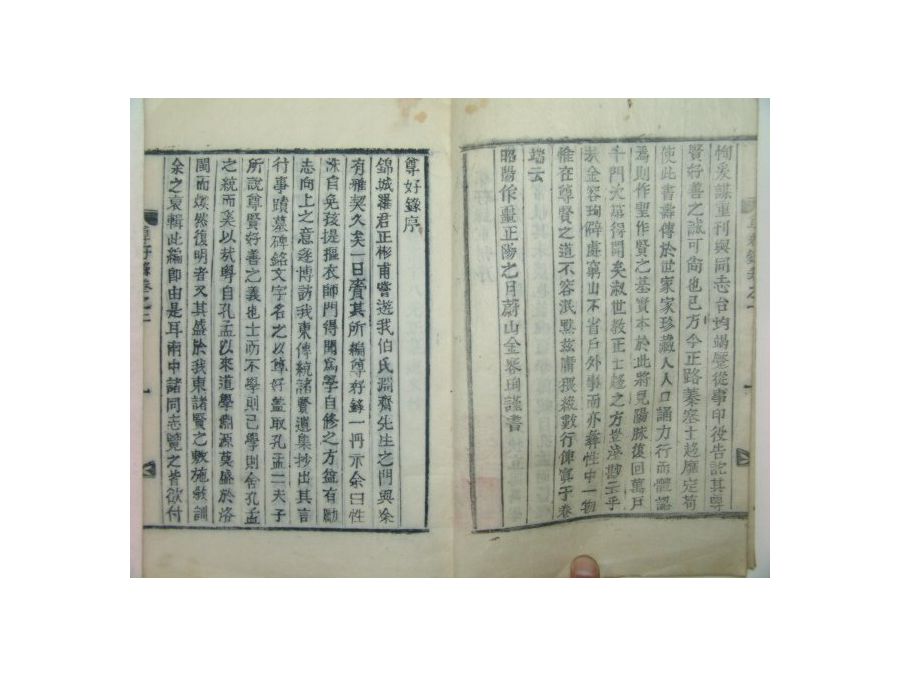 恂矣謀重刊與同志台均竭歷從事印役告訖其尊
賢好善之誠可尙也已方今正路蓁塞士趍靡定苟
使此書壽傳於世家家珍藏人人口誦力行而體認
焉則作聖作賢之基實本於此將見陽脉復回萬戶
千門次苐得開矣淑世敎正士趍之方豈淺尠云乎
㢤金容珣僻處窮山不省戶外事而亦彝性中一物
惟在尊賢之道不容泯默玆庸猥綴數行俾寘于卷
端云
昭陽作噩正陽之月蔚山金容珣謹書
尊好錄序
錦城羅君正彬甫嘗遊我伯氏淵齋先生之門與余
有雅契久矣一日賫其所編尊好錄一冊示余曰性
洙自免孩提摳衣師門得聞爲學自修之方益有勵
志向上之意遂博訪我東傳統諸賢遺集抄出其言
行事蹟墓碑銘文字名之以尊好盖取孔孟二夫子
所說尊賢好善之義也士而不學則已學則舍孔孟
之統而奚以㢤學自孔孟以來道學淵源莫盛於洛
閩而煥然復明者又其盛於我東諸賢之敷施敎訓
余之裒輯此編卽由是耳南中諸同志覽之皆欲付
尊好錄卷之上